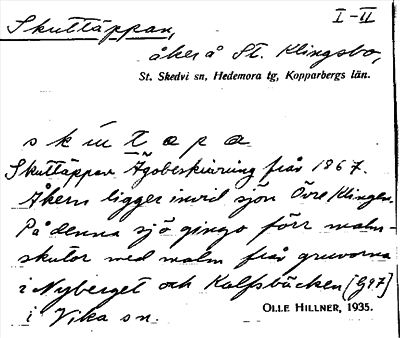 Skuttäppan, I-II
åker å St. Klingsbo,
St. Skedvi sn, Hedemora tg, Kopparbergs län.
Skuttäppan Ägobeskrivning från 1867.
Åkern ligger invid sjön Övre Klingen.
På denna sjö gingo förr malm-
skutor med malm från gruvorna
i Nyberget och Kalfsbäcken [G97]
i Vika sn.
OLLE HILLNER, 1935.